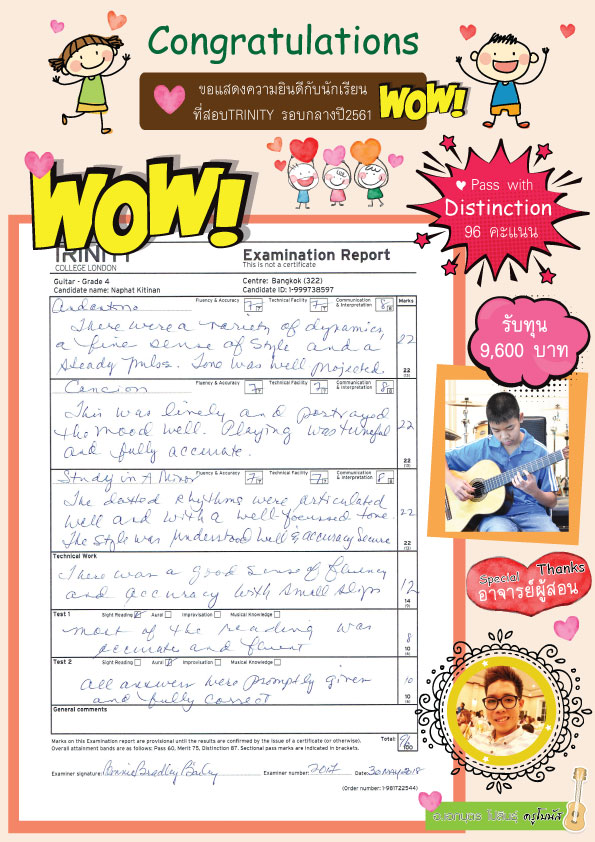 Congratulations
ขอแสดงความยินดีกับนักเรียน
ที่สอบTRINITY รอบกลางปี2561
WOW!
WOW!
Pass with
Distinction
96 คะแนน
รับทุน
9,600 บาท
TRINITY
COLLEGE LONDON
Examination Report
This is not a certificate
Guitar - Grade 4
Centre: Bangkok (322)
Candidate name: Naphat Kitinan
Candidate ID: 1-999738597
Andantino Fluency & Accuracy 7/7 Technical Facility 7/7 Communication & Interpretation 8/8 Marks
There were a variety of dynamics,
a fine sense of style and a
steady pulse. Tone was well projected.
22
22
(13)
Cancion Fluency & Accuracy 7/7 Technical Facility 7/7 Communication & Interpretation 8/8
This was lively and portrayed
the mood well. Playing was tuneful
and fully accurate.
22
22
(13)
Study in A Minor Fluency & Accuracy 7/7 Technical Facility 7/7 Communication & Interpretation 8/8
The dotted rhythms were articulated
well and with a well-focussed tone.
The style was understood well & accuracy secure
22
22
(13)
Technical Work
There was a good sense of fluency
and accuracy with small slips
12
14
(9)
Test 1 Sight Reading Aural Improvisation Musical Knowledge
most of the reading was
accurate and fluent
8
10
(6)
Test 2 Sight Reading Aural Improvisation Musical Knowledge
all answers were promptly given
and fully correct
10
10
(6)
General comments
Marks on this Examination report are provisional until the results are confirmed by the issue of a certificate (or otherwise).
Overall attainment bands are as follows: Pass 60, Merit 75, Distinction 87. Sectional pass marks are indicated in brackets.
Total: 96
100
Examiner signature: Examiner number: 2017 Date: 30 May 2018
(Order number: 1-981722544)
Special Thanks
อาจารย์ผู้สอน
ครูโมนัส